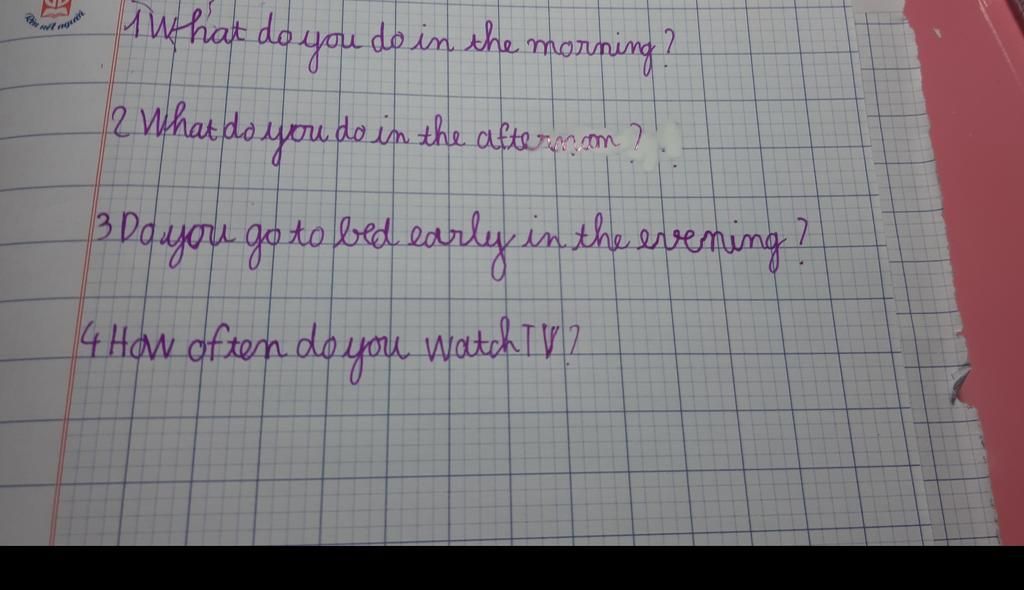 1 What do you do in the morning?
2 What do you do in the afternoon?
3 Do you go to bed early in the evening?
4 How often do you watch TV?